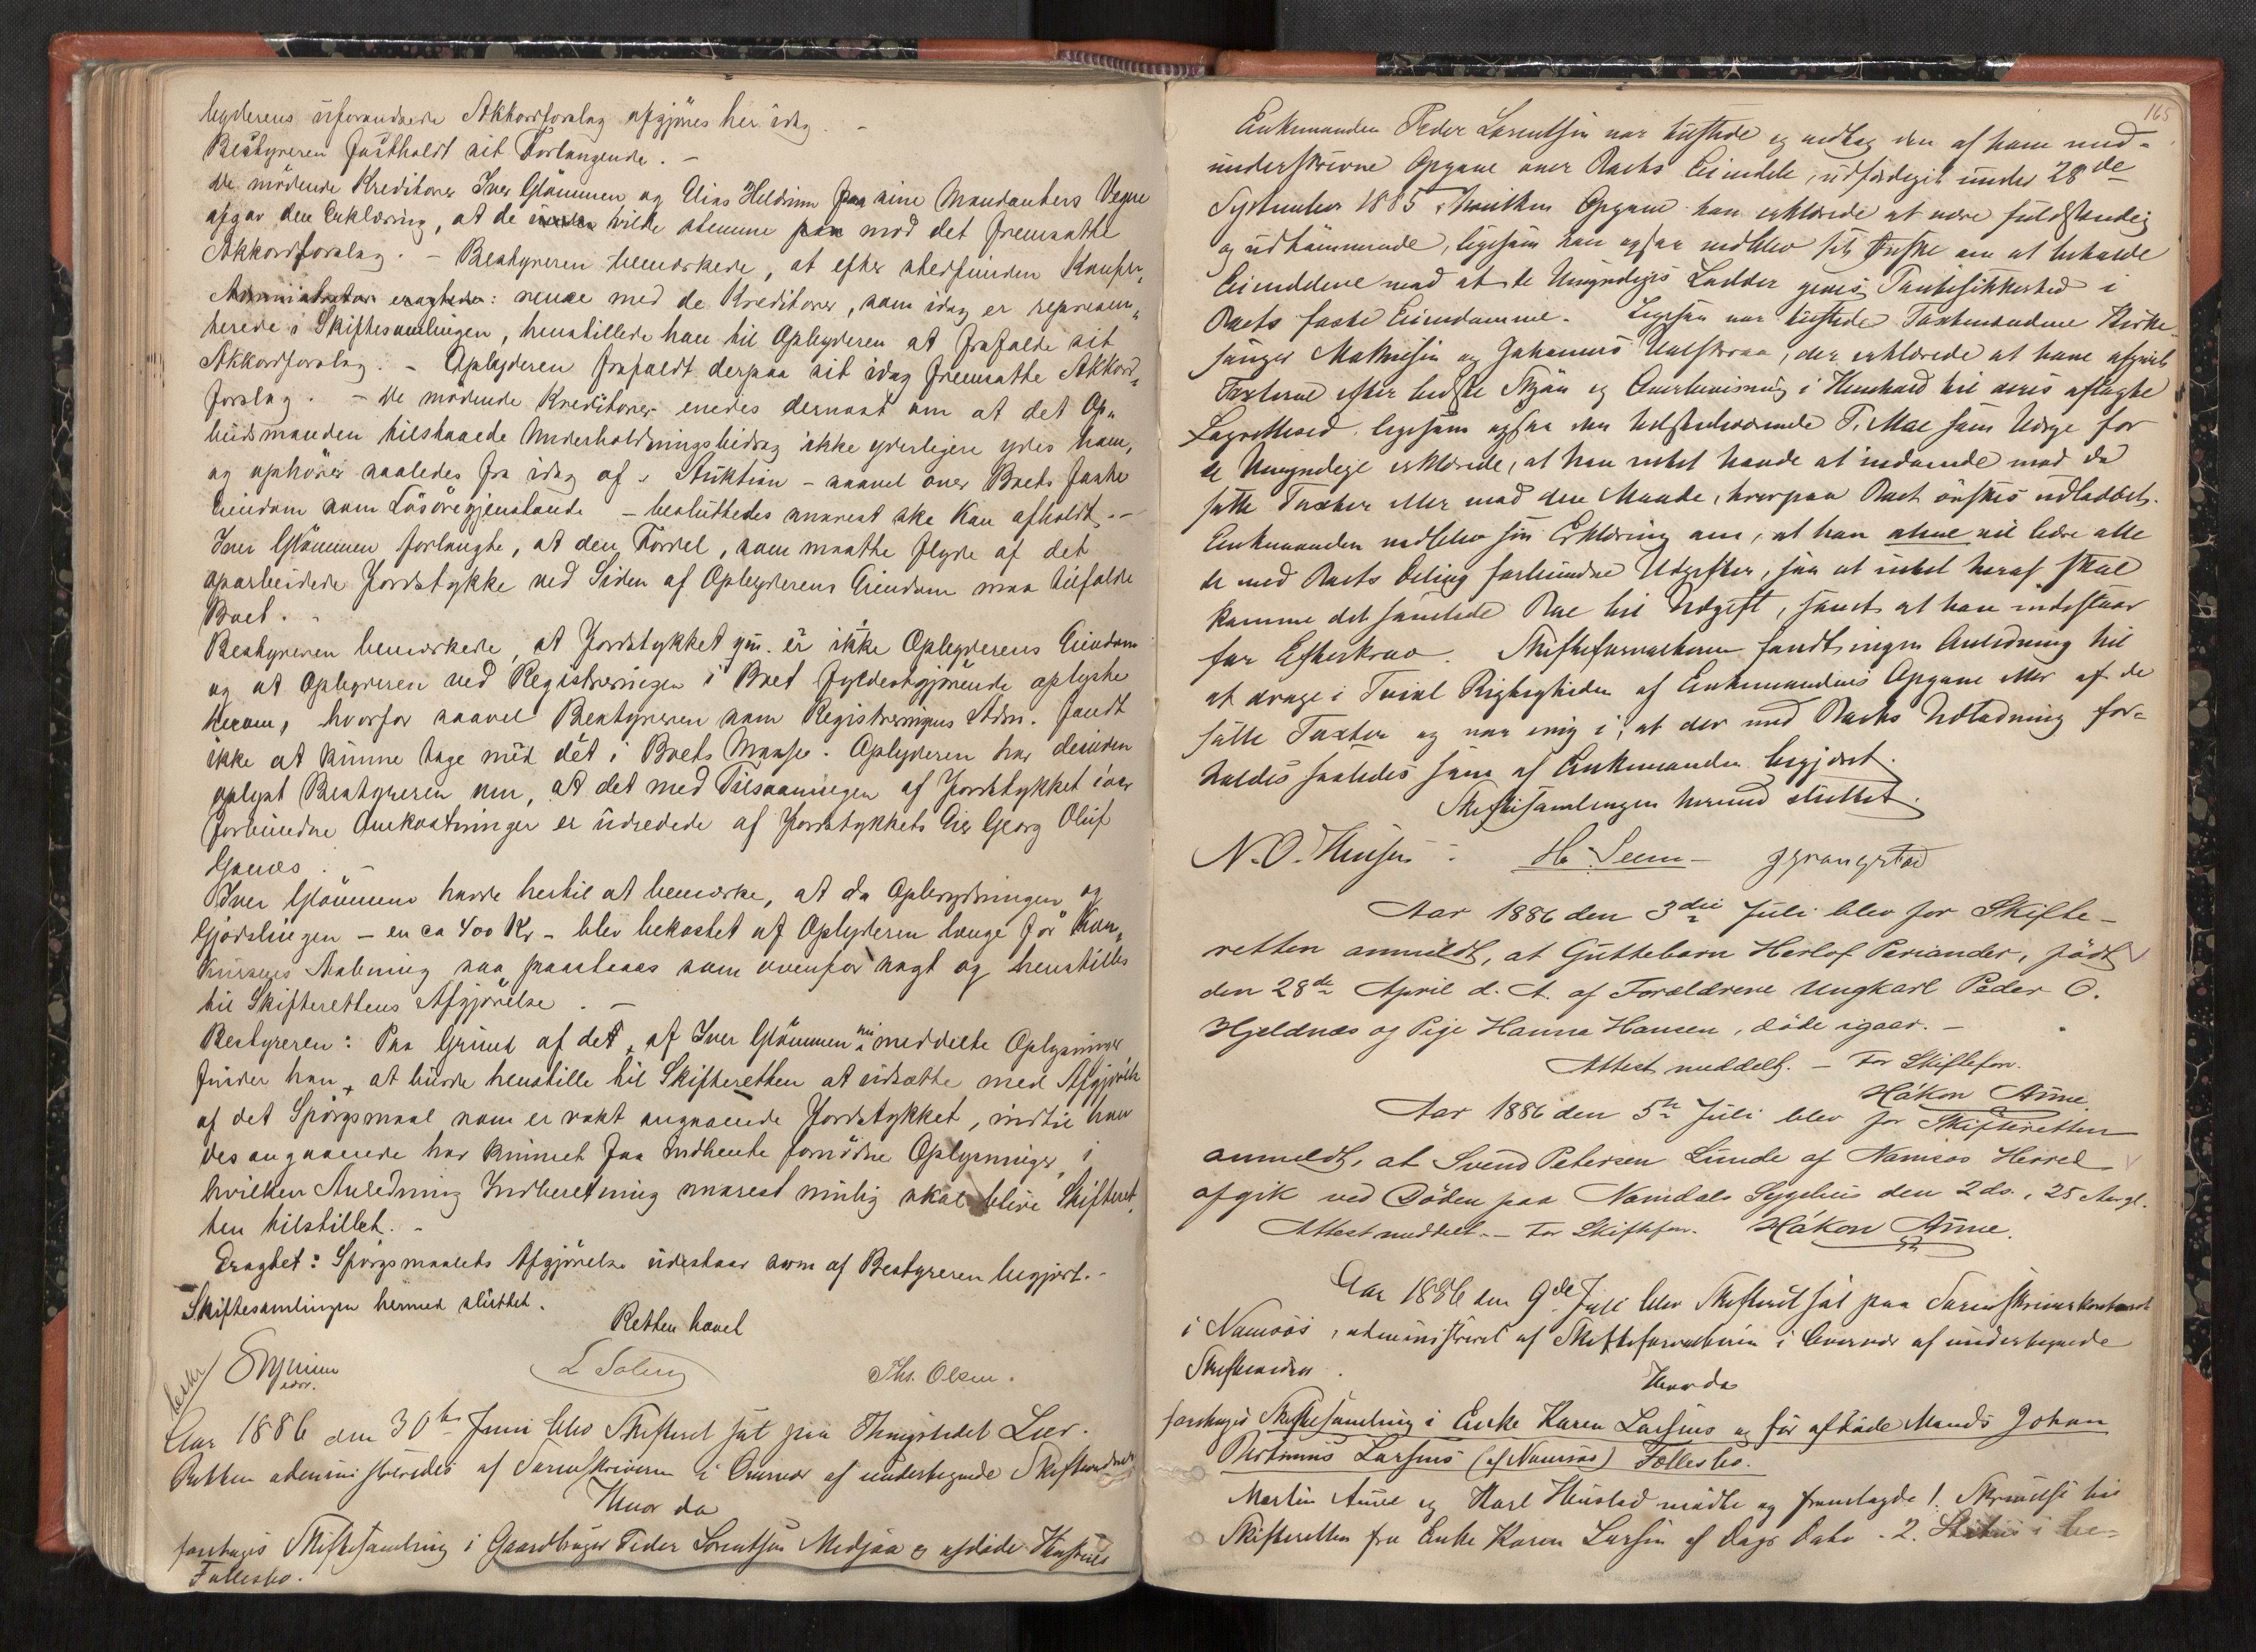 byderens uforandrede Akkordforslag afgjöres her idag. –
Bestyreren fastholdt sit Forlangende. –
De mödende Kreditorer Iver Glömmen og Elias Heldrum paa sine Mandanters Vegne
afgav den Erklæring, at de vilde stemme mod det fremsatte
Akkordforslag. – Bestyreren bemærkede, at efter stedfunden Konfer„
rence med de Kreditorer, som idag er represen„
terede i Skiftesamlingen, henstillede han til Opbyderen at frafalde sit
Akkordforslag. – Opbyderen frafaldt derpaa sit idag fremsatte Akkord„
forslag. – De mödende Kreditorer enedes dernæst om at det Op„
budsmanden tilstaaede Underholdningsbidrag ikke yderligere ydes ham,
og ophörer saaledes fra idag af. Auktion – saavel over Boets faste
Eiendom som Lösöregjenstande – besluttedes snarest ske kan afholdt. –
Iver Glömmen forlangte, at den Fordel, som maatte flyde af det
oparbeidede Jordstykke ved Siden af Opbyderens Eiendom maa tilfalde
Boet.
Bestyreren bemærkede, at Jordstykket er ikke Opbyderens Eiendom
og at Opbyderen ved Registreringen i Boet fyldestgjörende oplyste
herom, hvorfor saavel Bestyreren som Registreringens Adm. fandt
ikke at kunne tage med det i Boets Masse. Opbyderen har desuden
oplyst Bestyreren om, at det med Tilsaaningen af Jordstykket iaar
forbundne Omkostninger er udredede af Jordstykkets Eier Georg Oluf
Ganæs. –
Iver Glömmen havde hertil at bemærke, at da Opbrydningen og
Gjödslingen – en ca 400 Kr – blev bekostet af Opbyderen længe för Kon„
kursens Aabning saa paastaaes som ovenfor sagt og henstilles
til Skifterettens Afgjörelse. –
Bestyreren: Paa Grund af det af Iver Glömmen nu meddelte Oplysninger
finder han, at burde henstille til Skifteretten at udsætte med Afgjörelse
af det Spörgsmaal som er vakt angaaende Jordstykket, indtil han
desangaaende har kunnet faa indhente fornödne Oplysninger, i
hvilken Anledning Indberetning snarest mulig skal blive Skifteret„
ten tilstillet. –
Eragtet: Spörgsmaalets Afgjörelse udestaar som af Bestyreren begjært. –
Skiftesamlingen hermed sluttet.
Retten hævet
L Solem
Ths. Olsen.
Aar 1886 den 30te Juni blev Skifteret sat paa Thingstedet Lier.
Retten administreredes af Sorenskriveren i Overvær af undertegnede Skiftevidner
Hvor da
foretoges Skiftesamling i Gaardbruger Peder Lorentsen Medjaa og afdöde Hustrues
Fællesbo.
165
Enkemanden Peder Lorentsen var tilstede og vedtog den af ham med-
underskrevne Opgave over Boets Eiendele, udfærdiget under 28de
September 1885, hvilken Opgave han erklærede at være fuldstændig
og udtömmende, ligesom han ogsaa vedblev sit Önske om at beholde
Eiendelene mod at de Umyndiges Lodder gives Pantesikkerhed i
Boets faste Eiendomme. Ligesaa var tilstede Taxtmændene Kirke-
sanger Mathiesen og Johannes, der erklærede at have afgivet
Taxterne efter bedste Skjön og Overbevisning i Henhold til deres aflagte
Lagrettesed, ligesom ogsaa den tilstedeværende T. Moe som Værge for
de Umyndige erklærede, at han intet havde at indvende mod de
satte Taxter eller mod den Maade, hvorpaa Boet önskes udloddet.
Enkemanden vedblev sin Erklæring om, at han alene vil bære alle
de med Boets Deling forbundne Udgifter, saa at intet heraf skal
komme det samlede Boe til Udgift, samt at han indestaar
for Efterkrav. Skifteforvalteren fandt ingen Anledning til
at drage i Tvivl Rigtigheden af Enkemandens Opgave eller af de
satte Taxter og var enig i, at der med Boets Udlodning for-
holdes saaledes som af Enkemanden begjært.
Skiftesamlingen hermed sluttet.
N. O. Hansen H. Seem
Aar 1886 den 3die Juli blev for Skifte-
retten anmeldt, at Guttebarn Herlof Periander, födt
den 28de April d. A. af Forældrene Ungkarl Peder O.
Hjeldnæs og Pige Hanna Hansen, döde igaar. –
Attest meddelt. – For Skiftefor.
Håkon Aune.
Aar 1886 den 5te Juli blev for Skifteretten
anmeldt, at Svend Petersen Lunde af Namsos Herred
afgik ved Döden paa Namdals Sygehus den 2 ds., 25 Aar gl.
Attest meddelt. – For Skiftefor. Håkon Aune.
Aar 1886 den 9de Juli blev Skifteret sat paa Sorenskriverkontoret
i Namsos, administreret af Skifteforvalteren i Overvær af undertegnede
Skiftevidner.
Hvor da
foretoges Skiftesamling i Enke Karen Larsens og för afdöde Mands Johan
Larsens (af Namsos) Fællesbo.
Martin Aune og Karl Hustad mödte og fremlagde 1. Skrivelse til
Skifteretten fra Enke Karen Larsen af Dags Dato. 2.